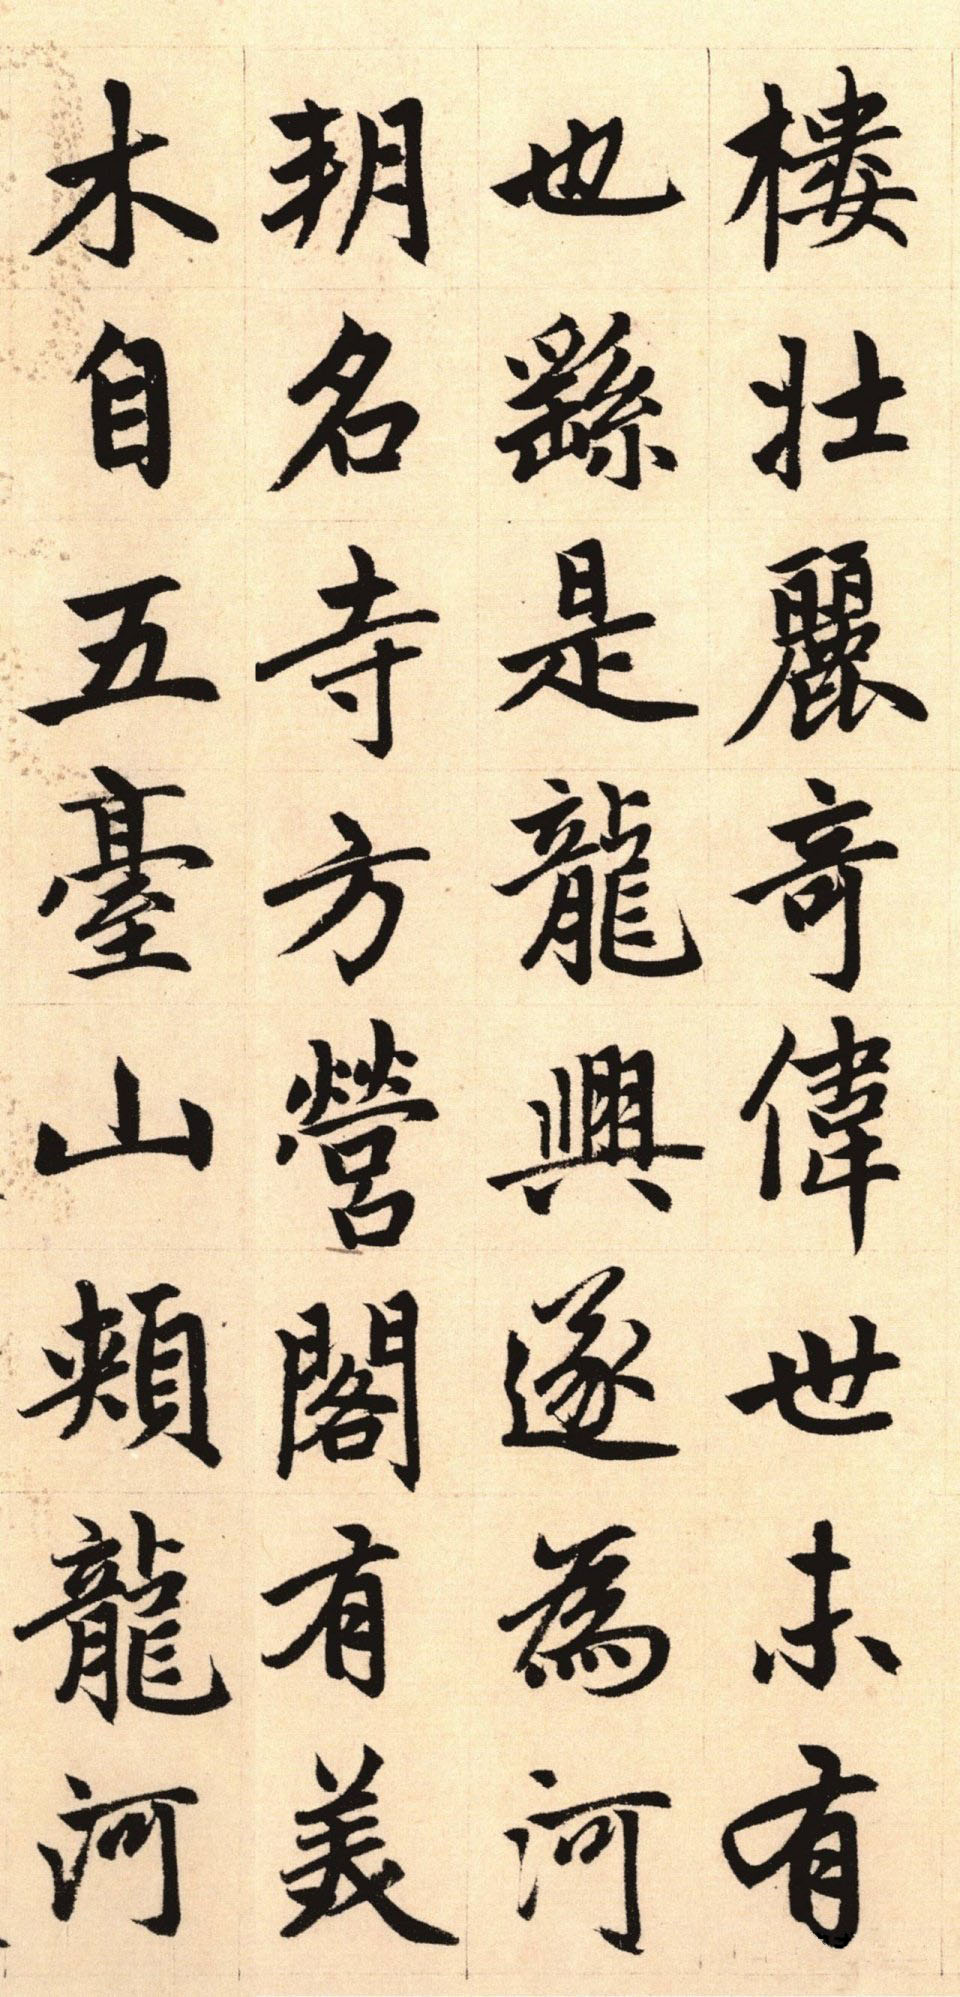 樓壯麗奇偉世未有
也繇是龍興遂為河
朔名寺方營閣有美
木自五臺山頰龍河